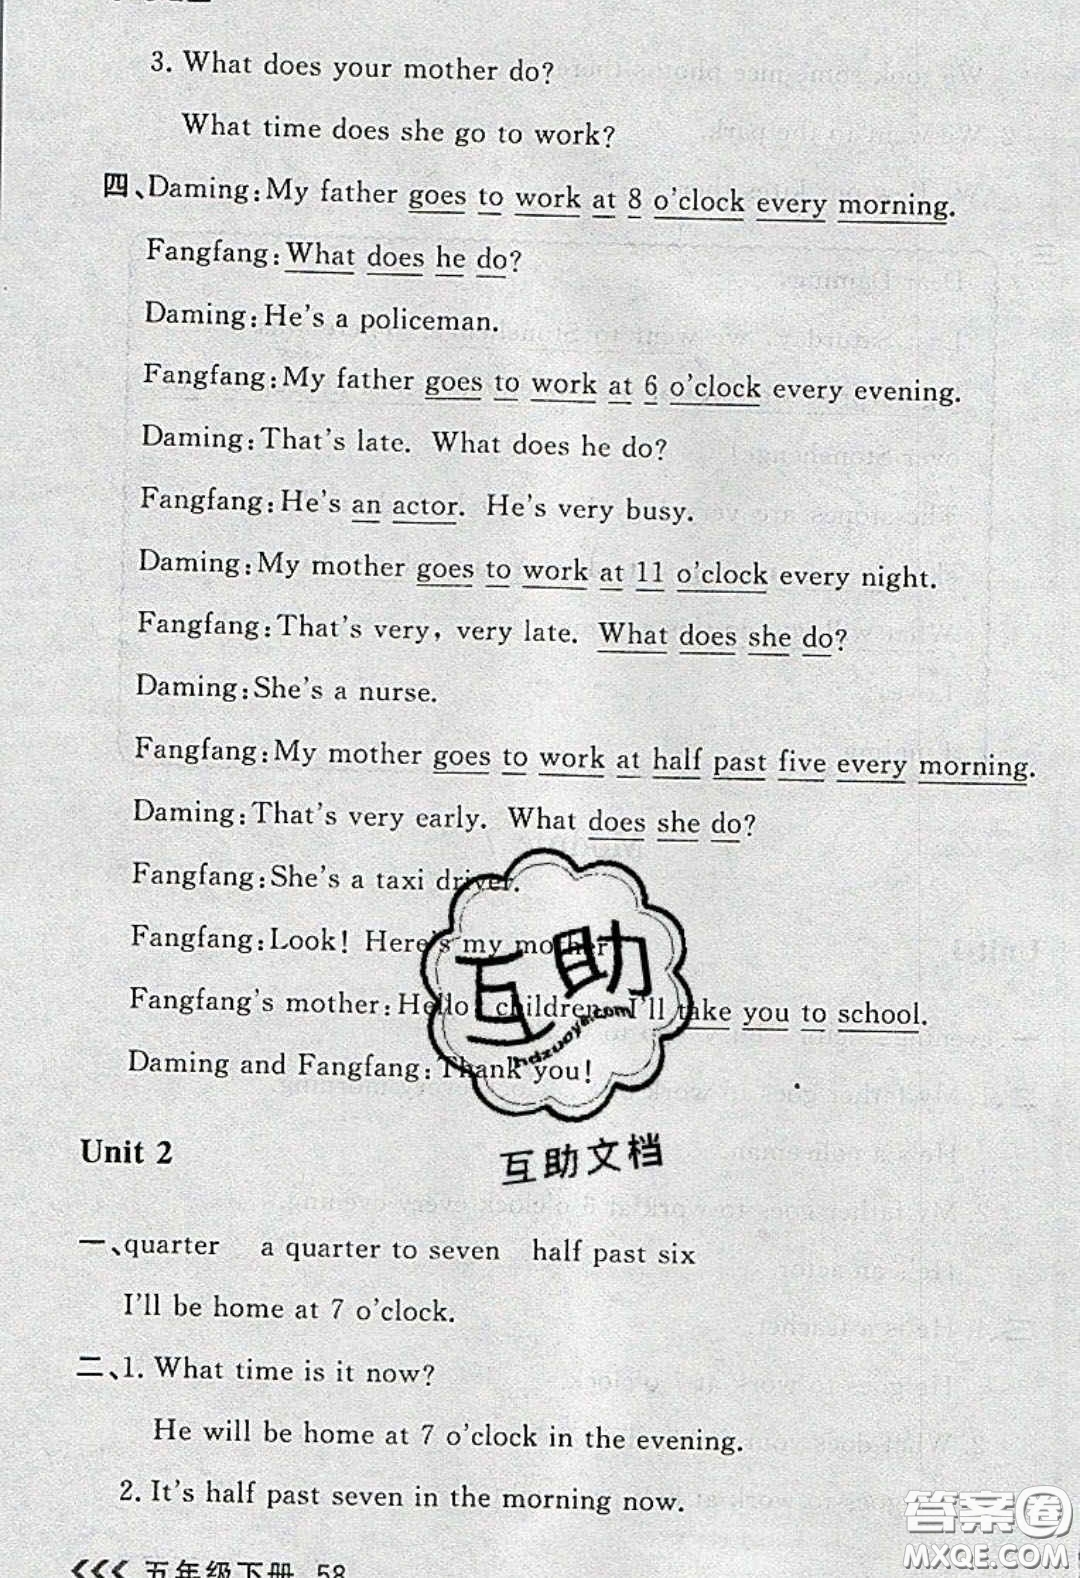 3. What does your mother do?
What time does she go to work?
四、Daming:My father goes to work at 8 o'clock every morning.
Fangfang:What does he do?
Daming:He's a policeman.
Fangfang:My father goes to work at 6 o'clock every evening.
Daming:That's late. What does he do?
Fangfang:He's an actor. He's very busy.
Daming:My mother goes to work at 11 o'clock every night.
Fangfang:That's very, very late. What does she do?
Daming:She's a nurse.
Fangfang:My mother goes to work at half past five every morning.
Daming:That's very early. What does she do?
Fangfang:She's a taxi driver.
Fangfang:Look! Here's my mother
Fangfang's mother:Hello, children. I'll take you to school.
Daming and Fangfang:Thank you!
互助
hdzuoye.com
互助文档
Unit 2
一、quarter a quarter to seven half past six
I'll be home at 7 o'clock.
二、1. What time is it now?
He will be home at 7 o'clock in the evening.
2. It's half past seven in the morning now.
五年级下册 58
答案圈
MXQE.COM